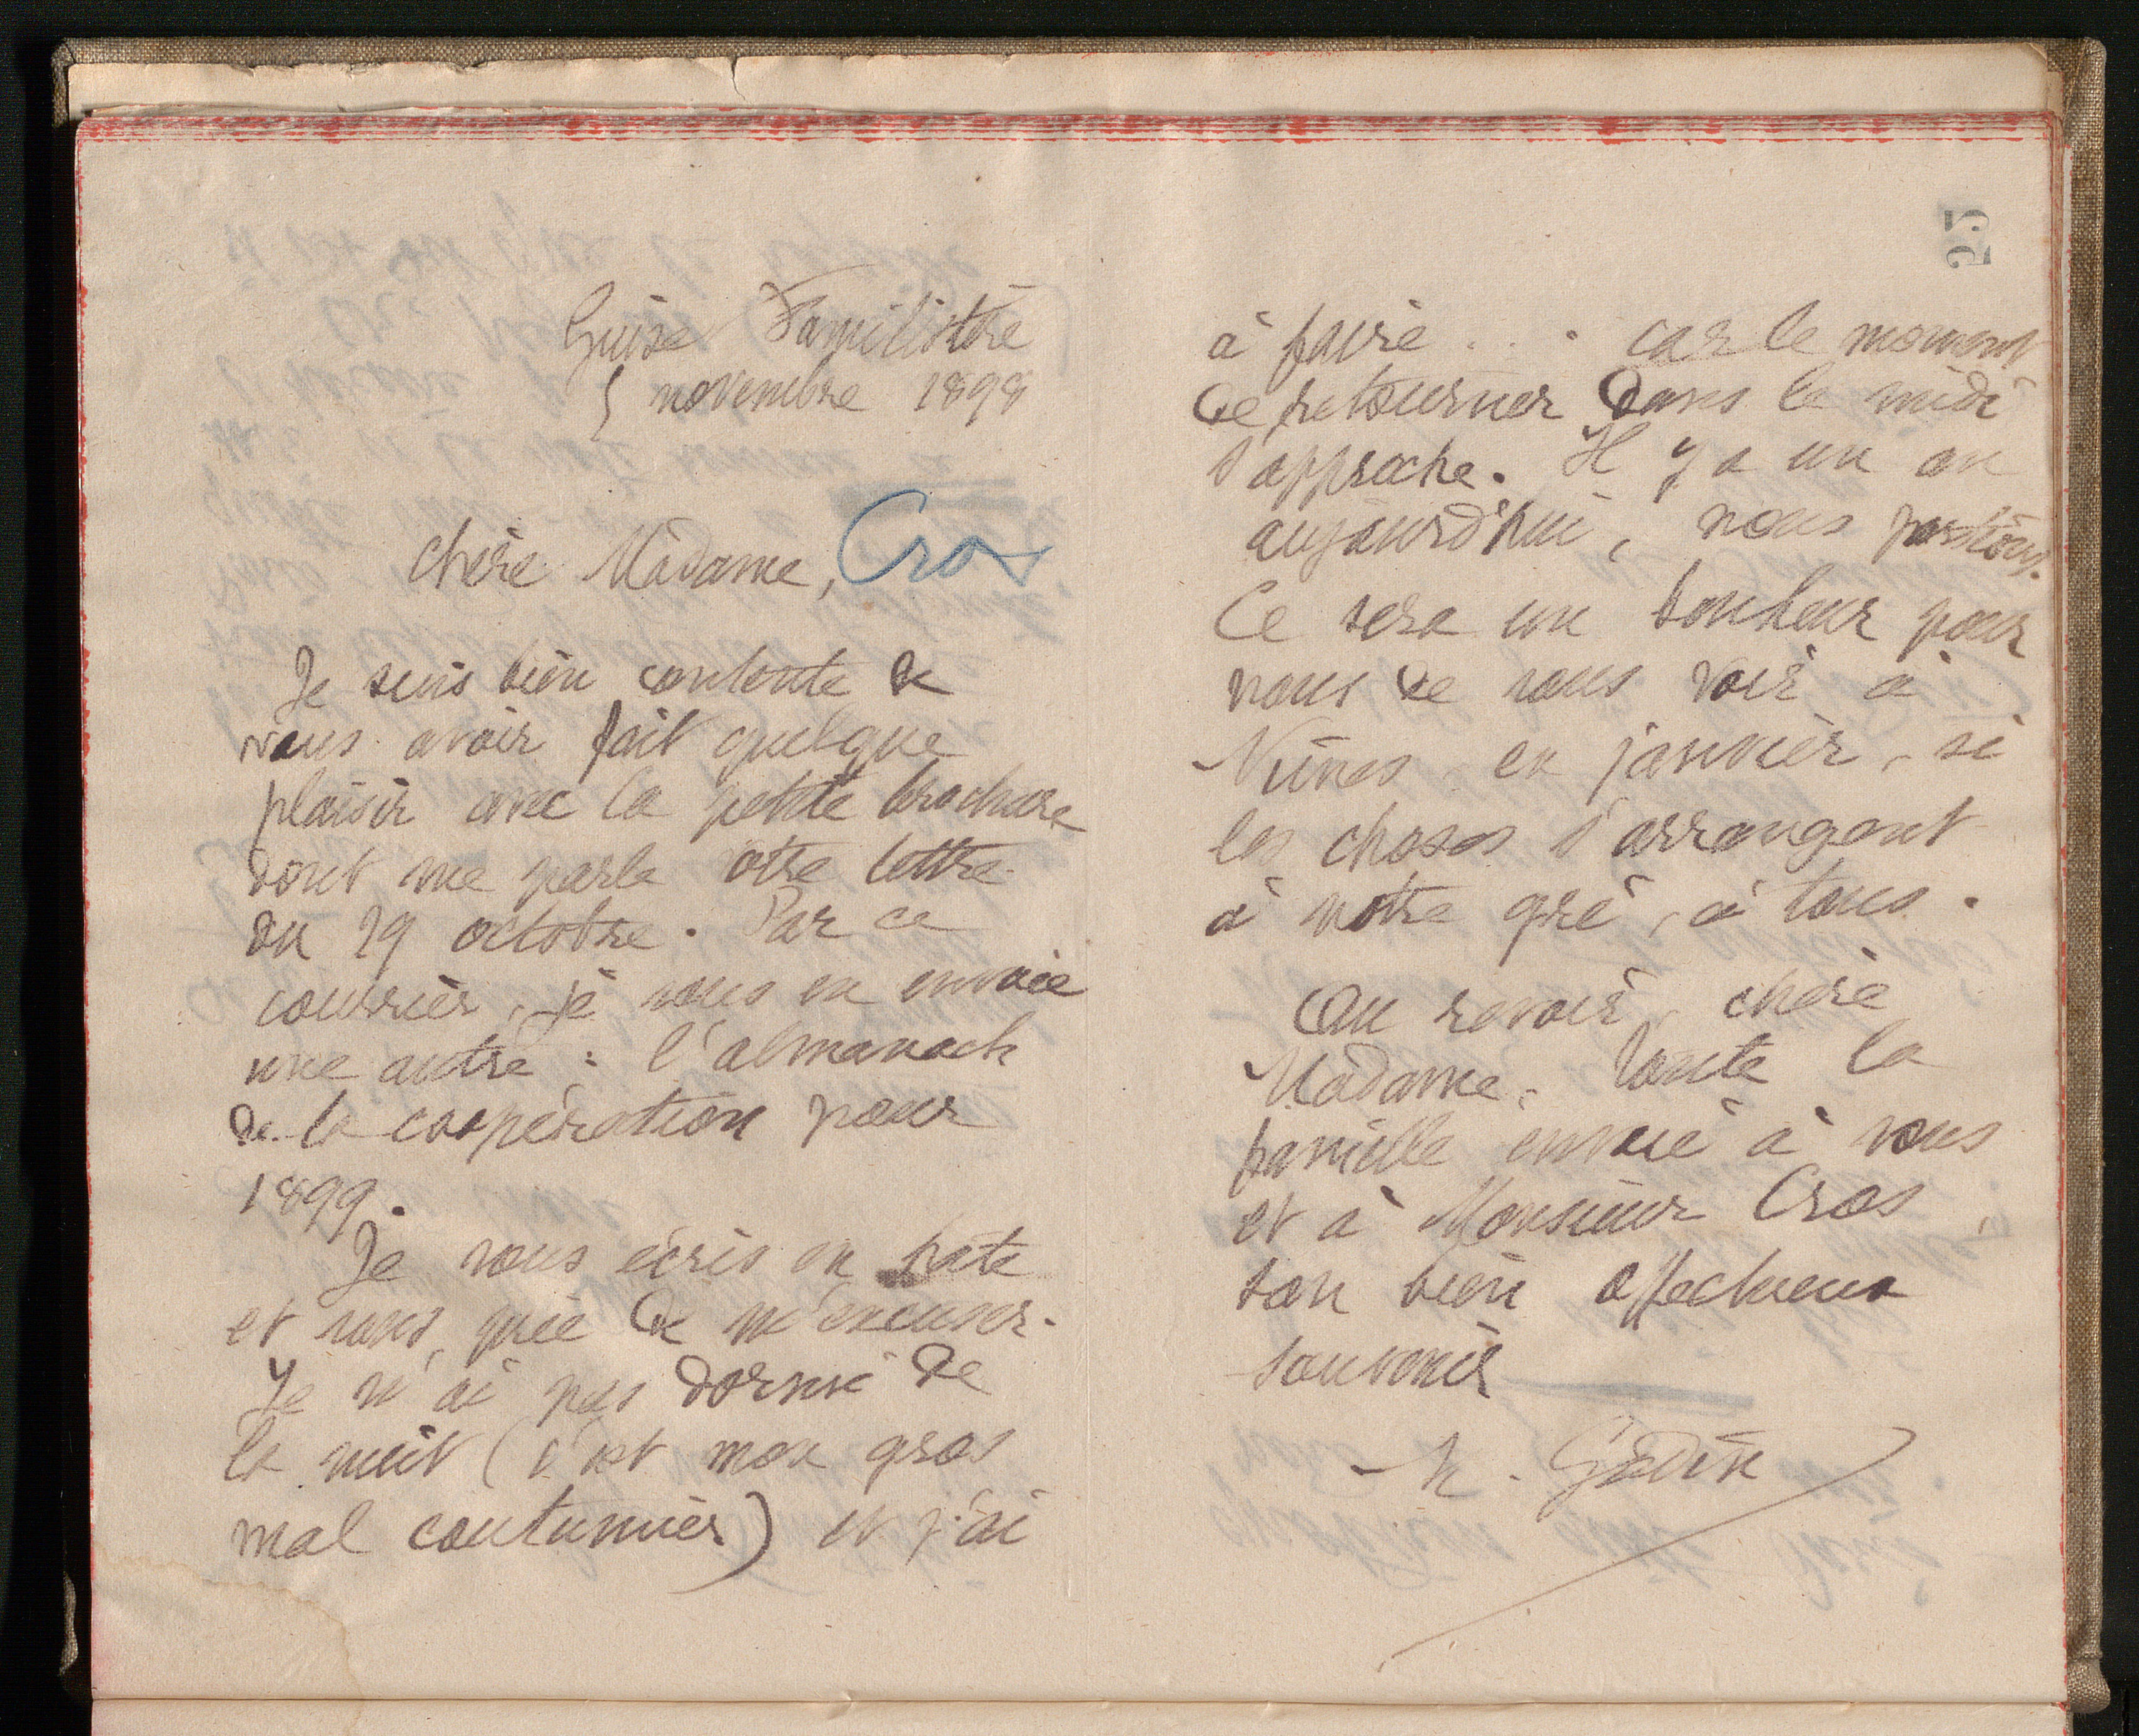 Guise Familistère
5 novembre 1898
Chère Madame, Cros
Je suis bien contente de
vous avoir fait quelque
plaisir avec la petite brochure
dont me parle votre lettre
du 29 octobre. Par ce
courrier, je vous en envoie
une autre : l'almanach
de la coopération pour
1899.
Je vous écris en hate
et vous prie de m'excuser.
Je n'ai pas dormi de
la nuit (c'est mon gros
mal coutumier) et j'ai
25
à faire . . . car le moment
de retourner dans le midi
s'approche. Il y a un an
aujourd'hui, nous partions.
Ce sera un bonheur pour
nous de vous voir à
Nîmes en janvier, si
les choses s'arrangent
à notre gré, à tous.
Au revoir, chère
Madame, toute la
famille envoie à vous
et à Monsieur Cros
son bien affectueux
souvenir
Godin